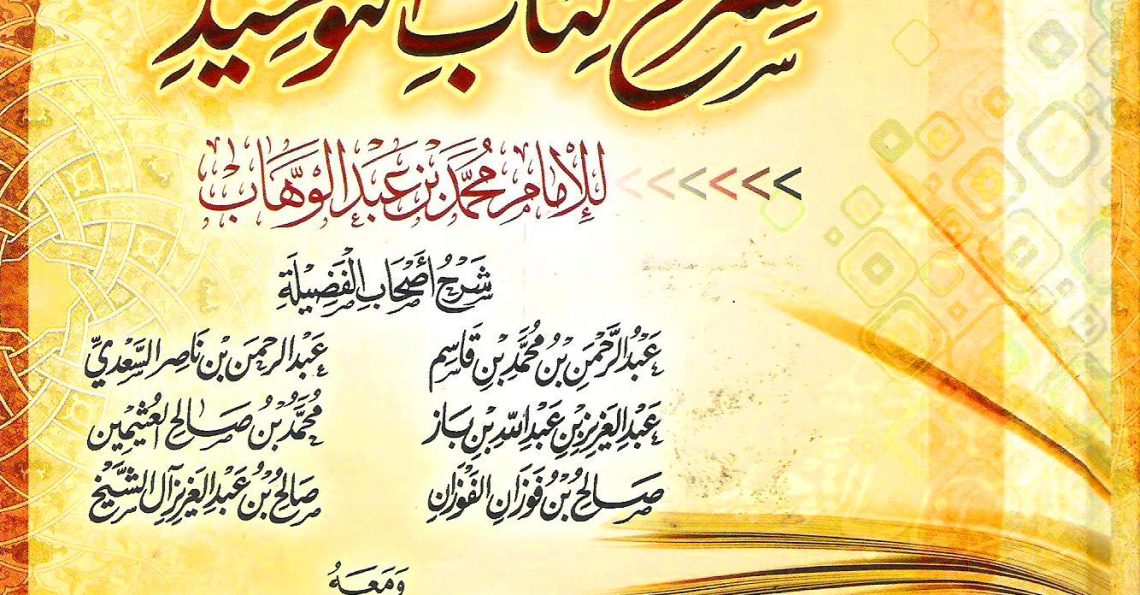 شرح كتاب التوحيد
للإمام محمد بن عبد الوهاب
شَرْحُ أَصْحَابِ الْفَضِيْلَةِ
عَبْدُ الرَّحْمَنِ بْنُ مُحَمَّدِ بْنِ قَاسِم عَبْدُ الرحمن بْن نَاصر السَّعْدِيِّ
عَبْدُ العَزِيزِ بْنِ عَبْدِ اللهِ بْنِ بَاز مُحَمَّدُ بْنُ صَالِح العُثَيْمِين
صَالِحُ بْنُ فَوْزَانِ الفَوْزَانِ صَالِحُ بْنُ عَبْدِ العَزِيزِ آل الشَّيْخ
وَمَعَهُ